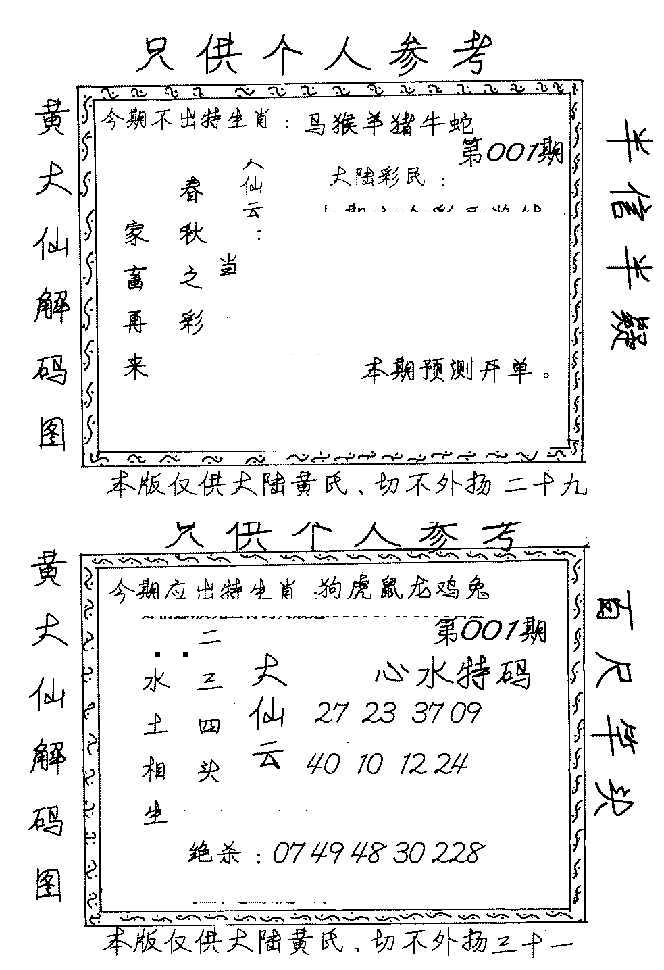 只供个人参考
黄大仙解码图
今期不出特生肖：马猴羊猪牛蛇
第001期
大陆彩民：
大仙云：
当
春秋之彩
家畜再来
本期预测开单。
半信半疑
本版仅供大陆黄氏、切不外扬二十九
只供个人参考
黄大仙解码图
今期应出特生肖 狗虎鼠龙鸡兔
第001期
心水特码
大仙云
27 23 37 09
40 10 12 24
二三四头
水土相生
绝杀：07 49 48 30 228
百尺竿头
本版仅供大陆黄氏、切不外扬三十一